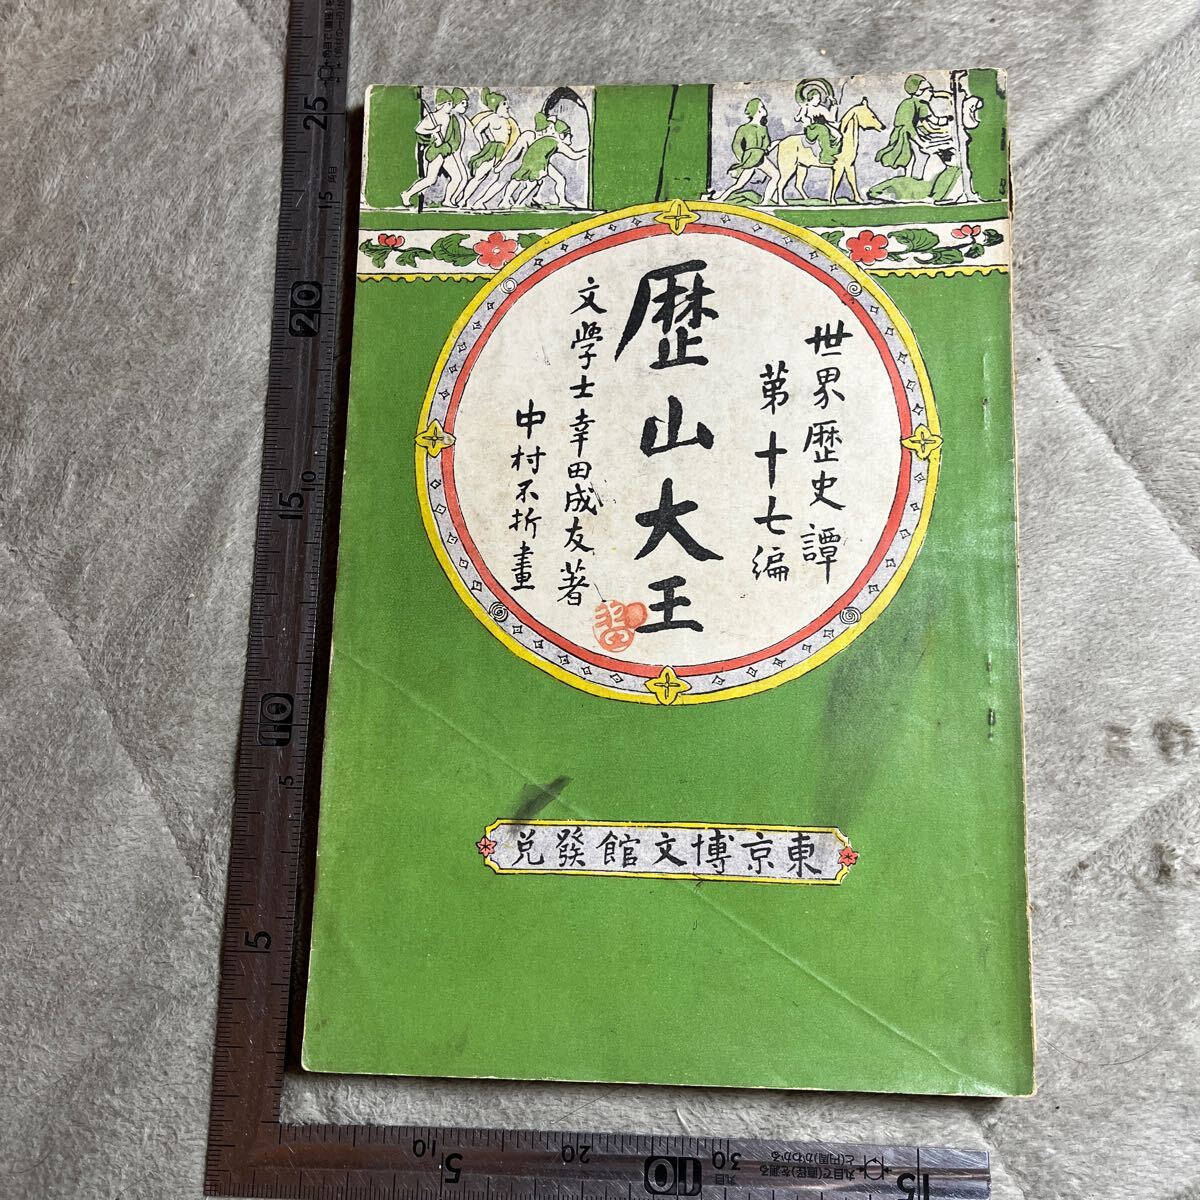 世界歴史譚
第十七編
歴山大王
文學士幸田成友著
中村不折畫
東京博文館發兌
25
20
15
10
5
15
10
5
5
10
15
10
20
30